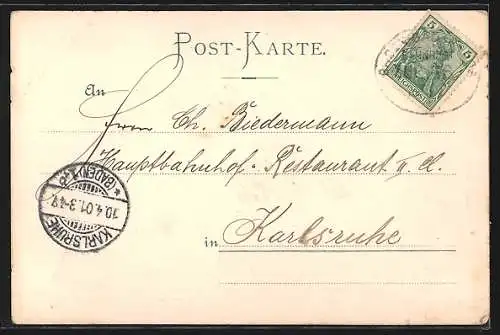 POST-KARTE.
An
Herrn Ch. Biedermann
Hauptbahnhof-Restaurant II. Cl.
in Karlsruhe
KARLSRUHE
10.4.01.3-4N
(BADEN)
5 5